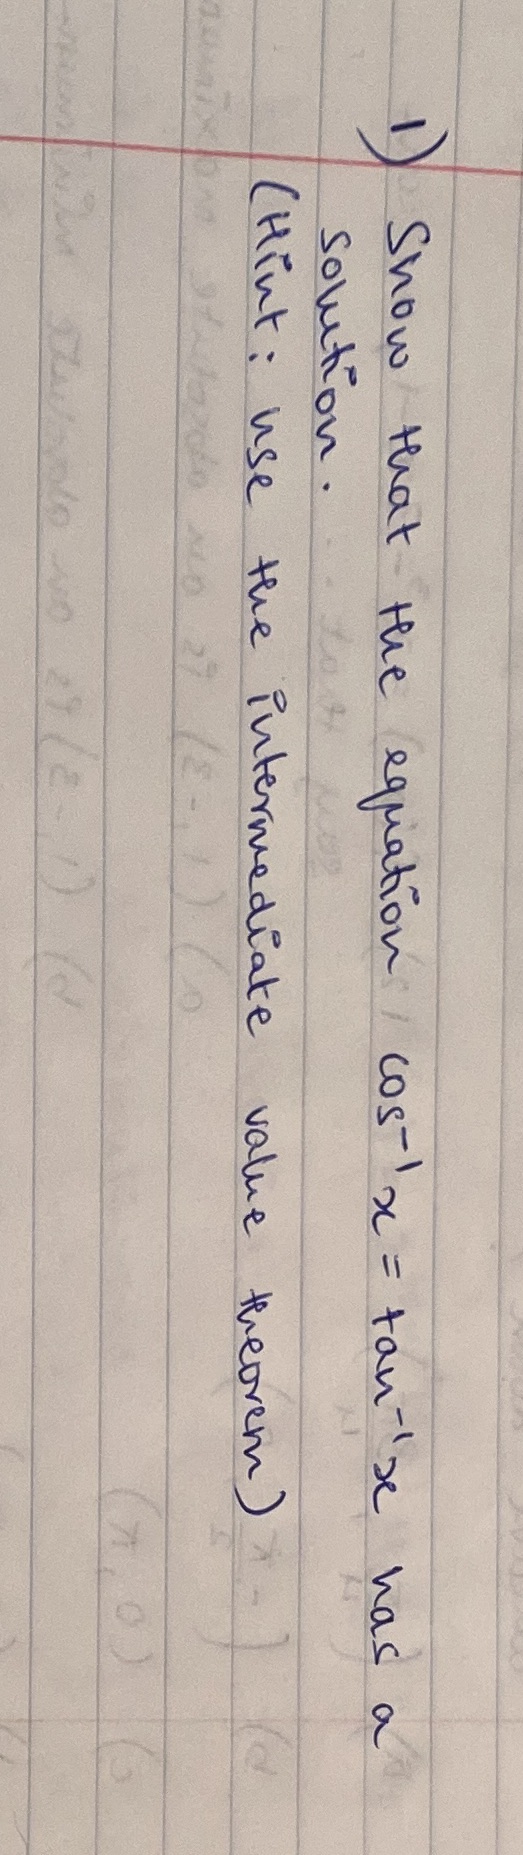 1) Show that the equation, cos⁻¹x = tan⁻¹x has a
solution.
(Hint: use the intermediate value theorem)